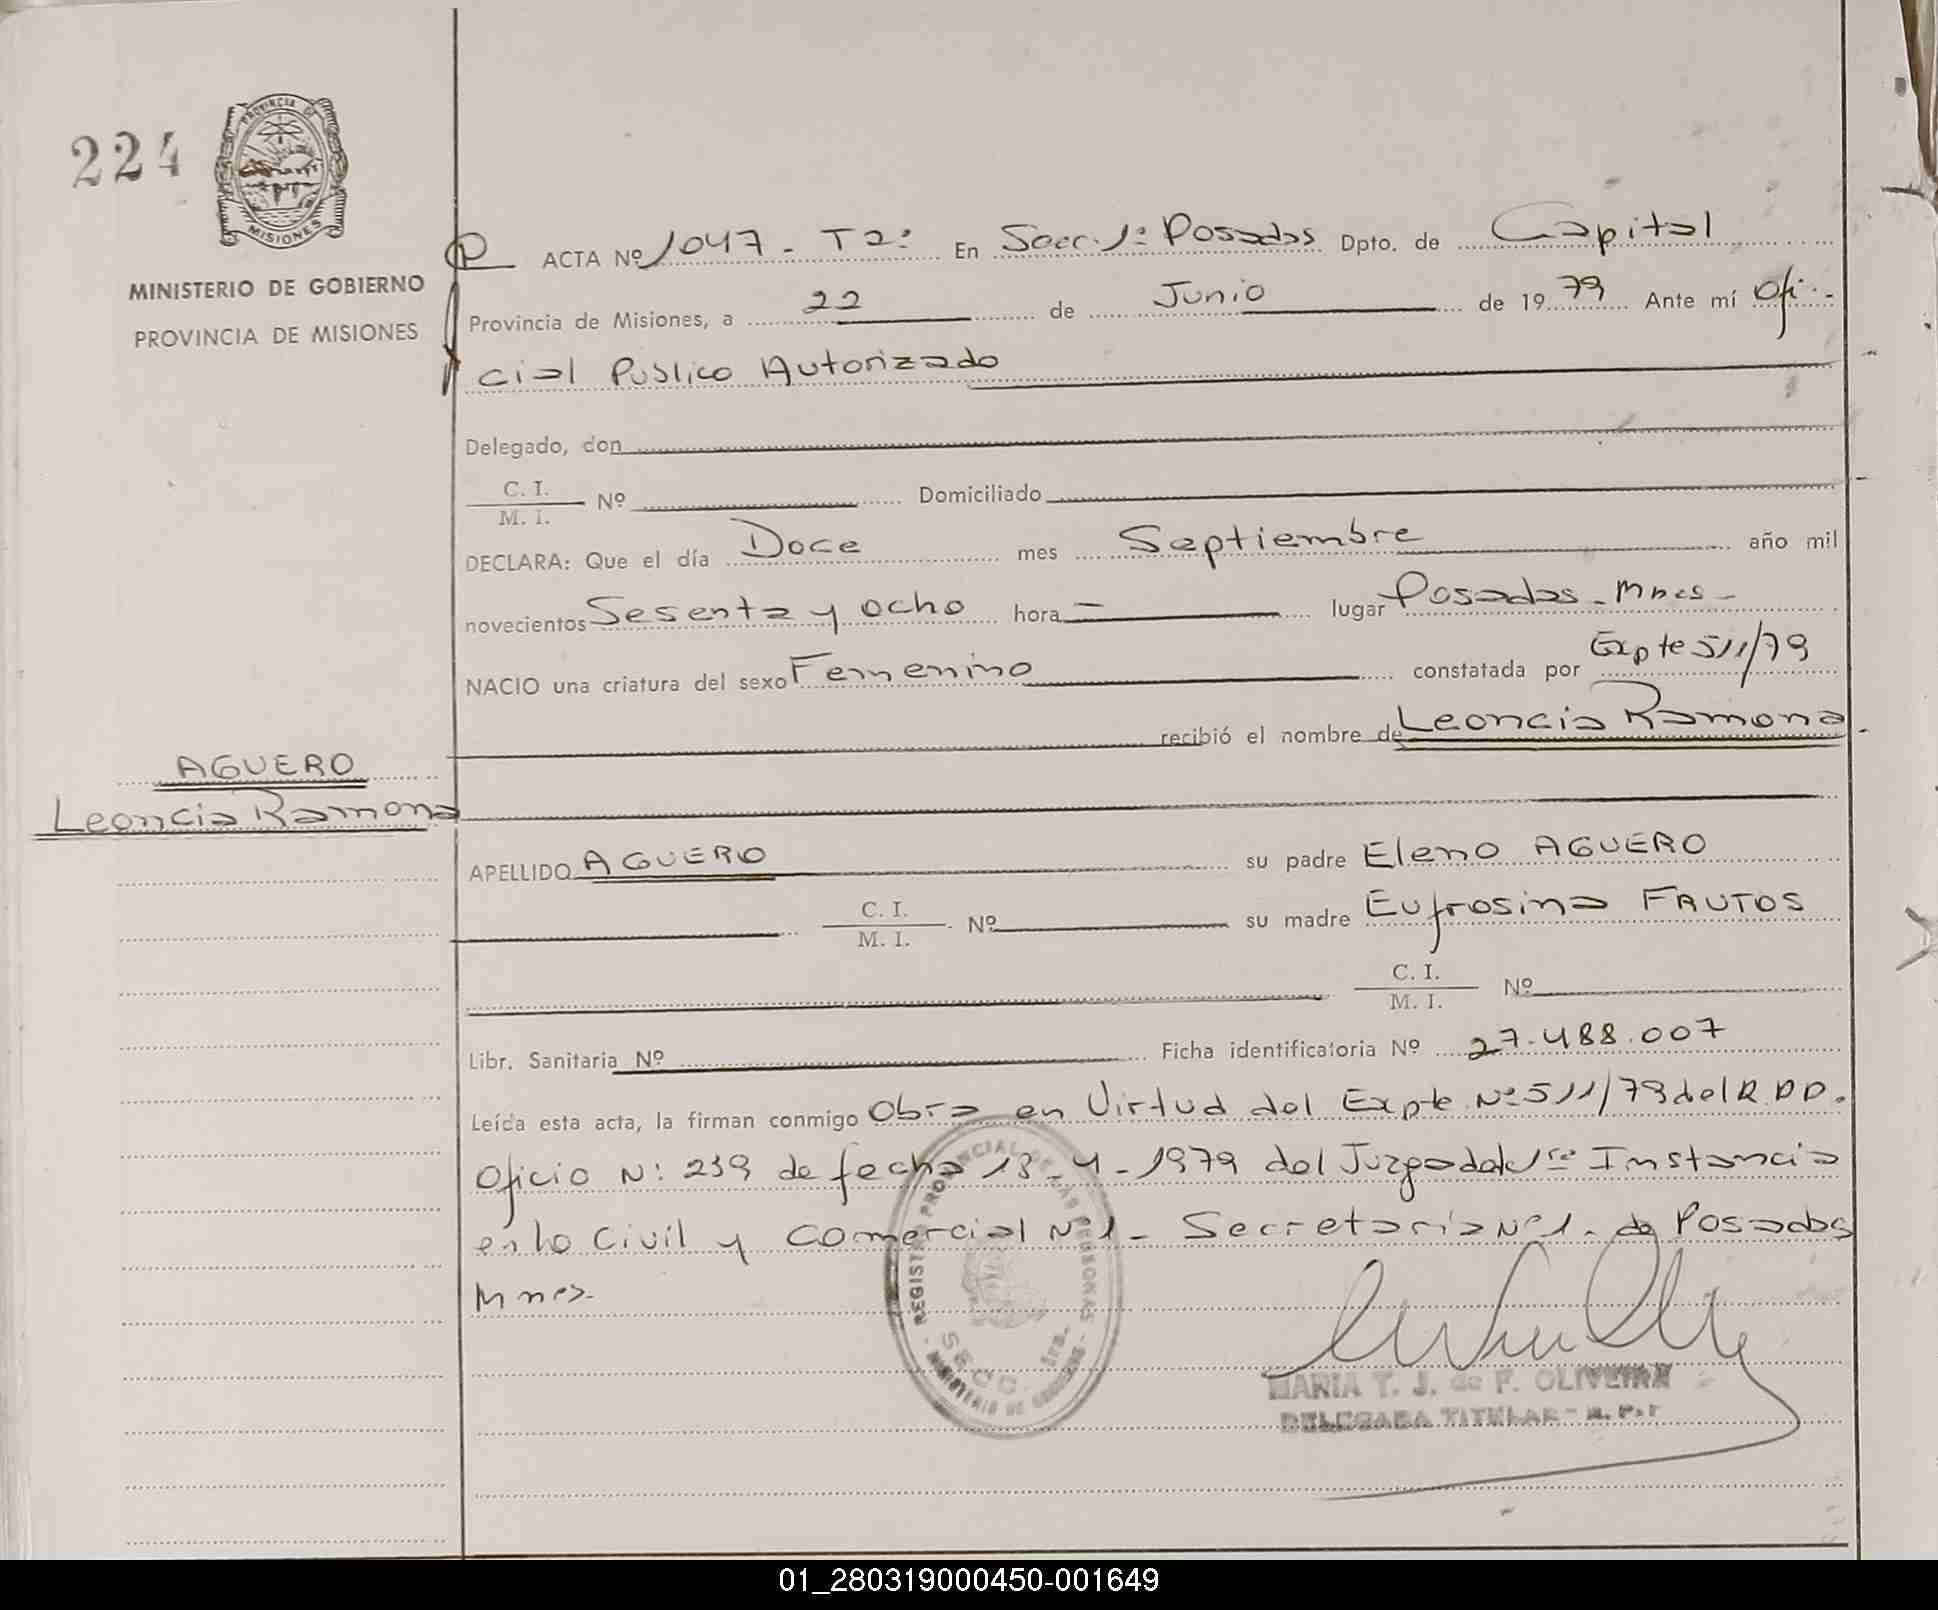 224
PROVINCIA DE
MISIONES
MINISTERIO DE GOBIERNO
PROVINCIA DE MISIONES
ACTA Nº 1047 - T2º En Secc. 1ª Posadas Dpto. de Capital
Provincia de Misiones, a 22 de Junio de 1979 Ante mí Ofi-
cial Publico Autorizado
Delegado, don
C. I.
M. I. Nº Domiciliado
DECLARA: Que el día Doce mes Septiembre año mil
novecientos Sesenta y ocho hora - lugar Posadas - Mnes -
NACIO una criatura del sexo Femenino constatada por Expte 511/79
recibió el nombre de Leoncia Ramona
AGUERO
Leoncia Ramona
APELLIDO AGUERO su padre Eleno AGUERO
C. I.
M. I. Nº su madre Eufrosina FRUTOS
C. I.
M. I. Nº
Libr. Sanitaria Nº Ficha identificatoria Nº 27.488.007
Leída esta acta, la firman conmigo Obra en Virtud del Expte Nº 511/79 del R.D.D.
Oficio Nº 239 de fecha 13-4-1979 del Juzgado de 1ra Instancia
en lo Civil y Comercial Nº 1 - Secretaria Nº 1. de Posadas
Mnes.
REGISTRO PROVINCIAL DE LAS PERSONAS
SECC. 1ra.
MINISTERIO DE GOBIERNO
MARIA T. J. de F. OLIVEIRA
DELEGADA TITULAR - R. P. P
01_280319000450-001649